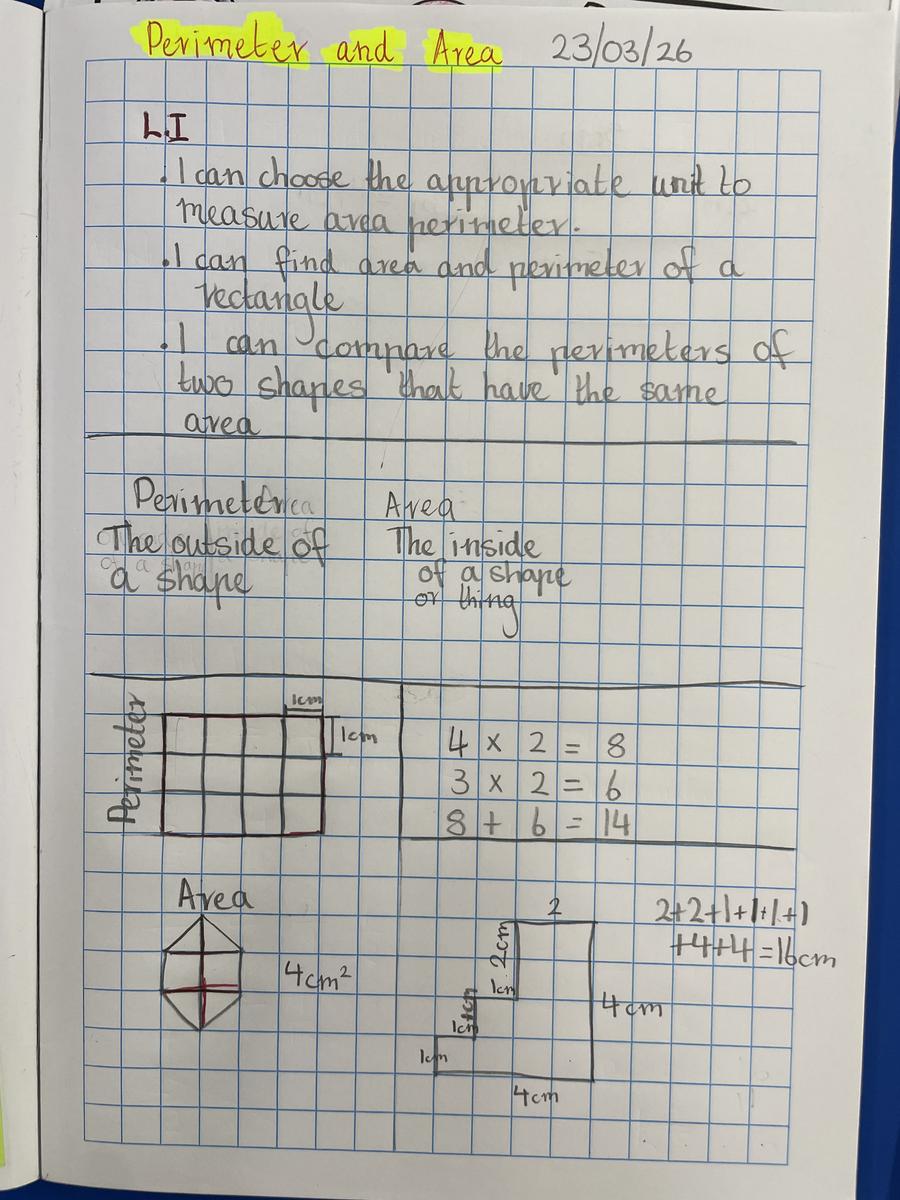 Perimeter and Area 23/03/26
L.I
. I can choose the appropriate unit to
measure area perimeter.
. I can find area and perimeter of a
rectangle
. I can compare the perimeters of
two shapes that have the same
area
Perimeter
The outside of
a shape
Area
The inside
of a shape
or thing
Perimeter
1cm
1cm
4 x 2 = 8
3 x 2 = 6
8 + 6 = 14
Area
4cm²
2
2cm
1cm
1cm
1cm
1cm
4cm
4cm
2+2+1+1+1+1
+4+4=16cm